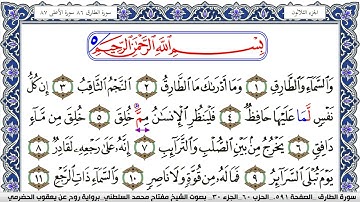 الجزء الثلاثون
سورة الطارق ٨٦ سورة الأعلى ٨٧
بِسْمِ ٱللَّهِ ٱلرَّحْمَٰنِ ٱلرَّحِيمِ
وَٱلسَّمَآءِ وَٱلطَّارِقِ ١ وَمَآ أَدْرَىٰكَ مَا ٱلطَّارِقُ ٢ ٱلنَّجْمُ ٱلثَّاقِبُ ٣ إِن كُلُّ
نَفْسٖ لَّمَا عَلَيْهَا حَافِظٞ ٤ فَلْيَنظُرِ ٱلْإِنسَٰنُ مِمَّ خُلِقَ ٥ خُلِقَ مِن مَّآءٖ
دَافِقٖ ٦ يَخْرُجُ مِنۢ بَيْنِ ٱلصُّلْبِ وَٱلتَّرَآئِبِ ٧ إِنَّهُۥ عَلَىٰ رَجْعِهِۦ لَقَادِرٞ ٨
يَوْمَ تُبْلَى ٱلسَّرَآئِرُ ٩ فَمَا لَهُۥ مِن قُوَّةٖ وَلَا نَاصِرٖ ١٠ وَٱلسَّمَآءِ ذَاتِ ٱلرَّجْعِ
سورة الطارق الصفحة ٥٩١ الحزب ٦٠ الجزء ٣٠ بصوت الشيخ مفتاح محمد السلطني برواية روح عن يعقوب الحضرمي